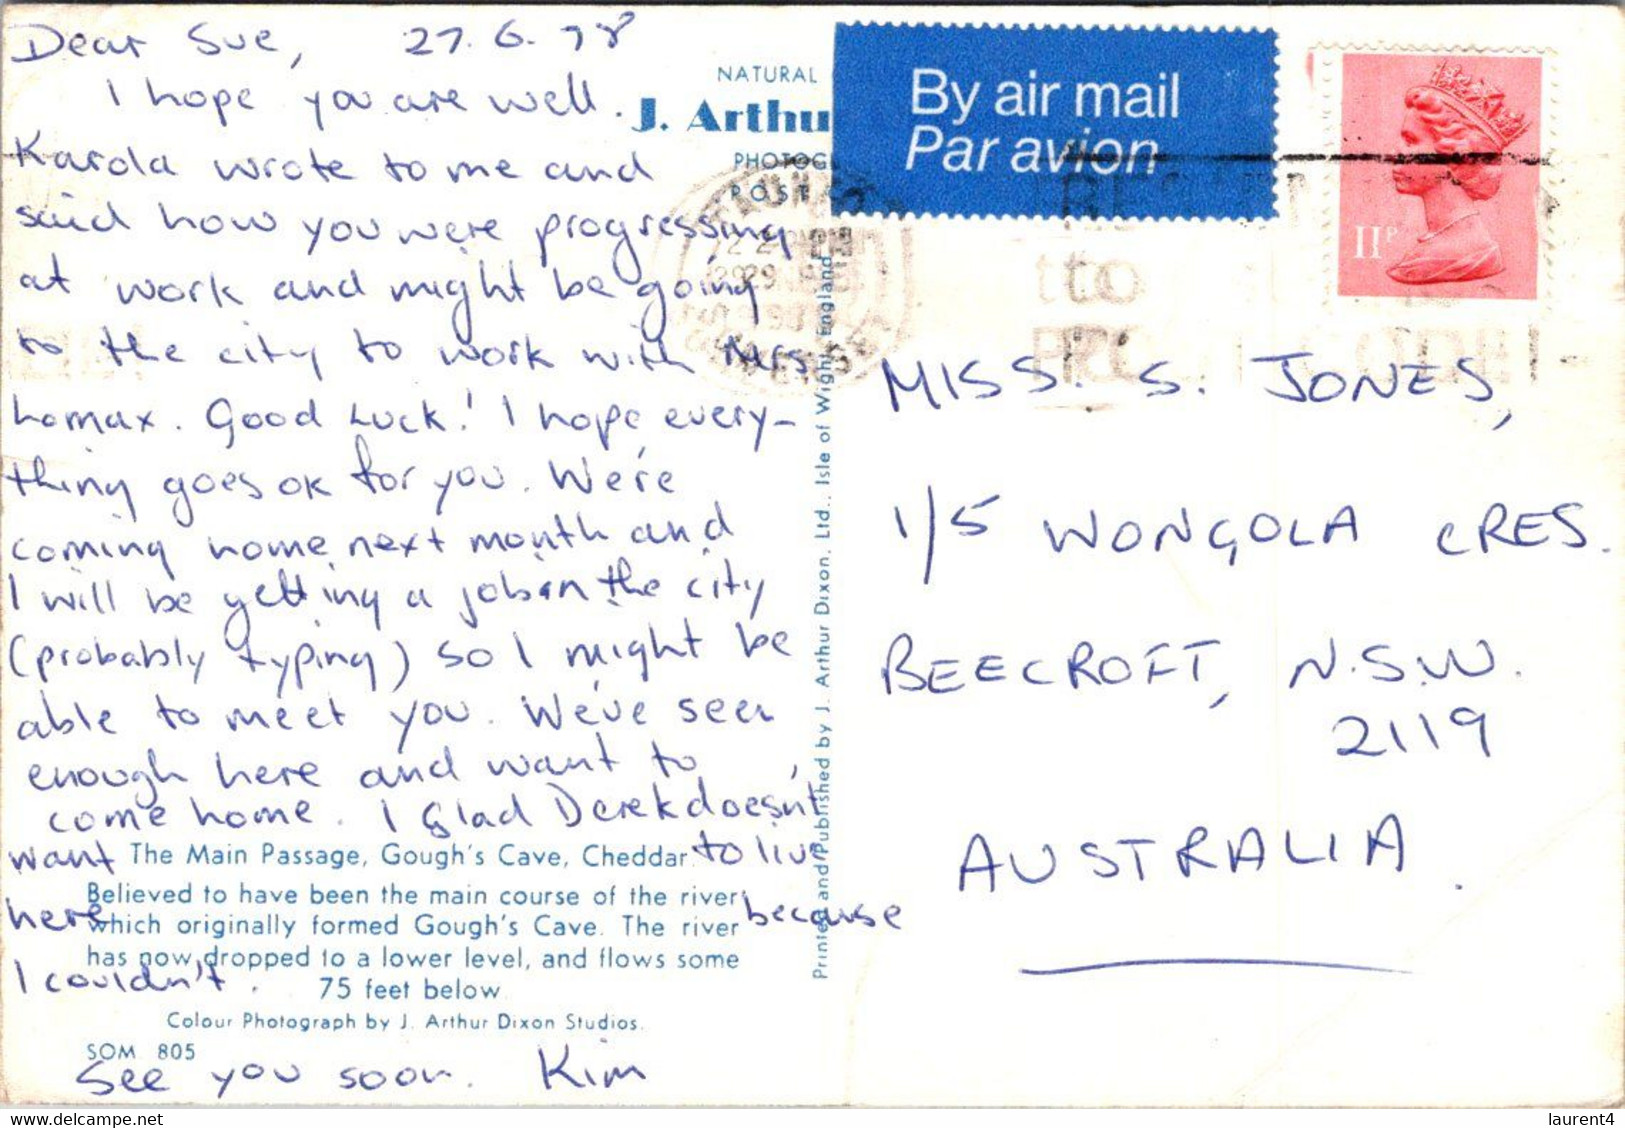 Dear Sue, 27.6.78
I hope you are well.
Karola wrote to me and
said how you were progressing
at work and might be going
to the city to work with Mrs.
Lomax. Good Luck! I hope every-
thing goes ok for you. We're
coming home next month and
I will be getting a job in the city
(probably typing) so I might be
able to meet you. We've seen
enough here and want to
come home. I glad Derek doesn't
want to live
here because
I couldn't.
See you soon. Kim
The Main Passage, Gough's Cave, Cheddar.
Believed to have been the main course of the river
which originally formed Gough's Cave. The river
has now dropped to a lower level, and flows some
75 feet below.
Colour Photograph by J. Arthur Dixon Studios.
SOM 805
NATURAL
J. Arthu
PHOTOG
POST
Printed and Published by J. Arthur Dixon, Ltd., Isle of Wight, England
By air mail
Par avion
11P
MISS. S. JONES,
1/5 WONGOLA CRES.
BEECROFT, N.S.W.
2119
AUSTRALIA.
laurent4